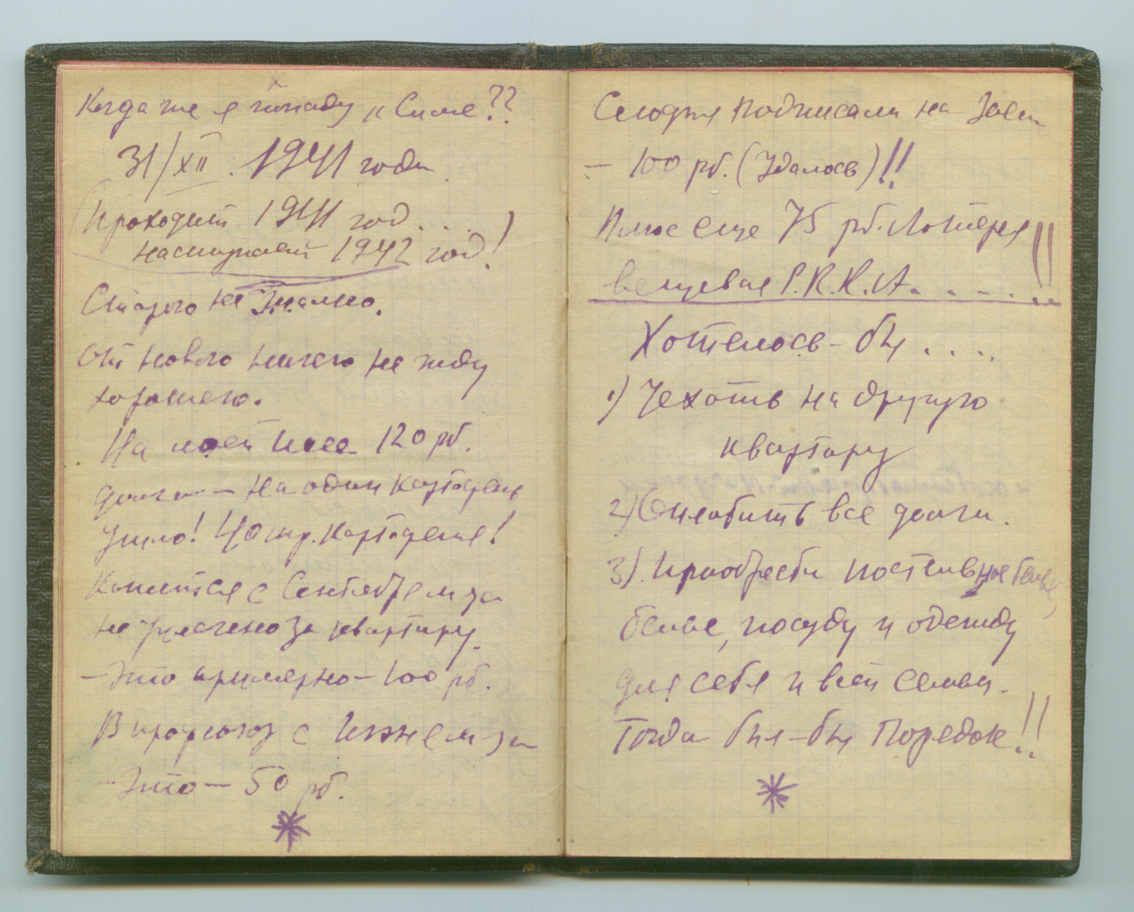 Когда же я попаду к Симе??
31/XII. 1941 года.
(Проходит 1941 год....)
наступает 1942 год!
Старого не жалко.
От нового ничего не жду
хорошего.
На моей шее 120 рб.
долги — на один картофель
ушло! 40 кгр. картофеля!
Кажется с Сентября м-ца
не уплачено за квартиру.
— Это примерно — 100 рб.
В профсоюз с Июня м-ца
— Это — 50 рб.
Сегодня подписали на Заем
— 100 рб. (Удалось)!!
Плюс еще 75 рб. Лотерея
вещевая Р.К.К.А. . . . . !!
Хотелось-бы ....
1) Уехать на другую
квартиру
2) Отлабить все долги.
3). Приобрести постельное белье,
белье, посуду и одежду
для себя и всей семьи.
Тогда был-бы порядок!!